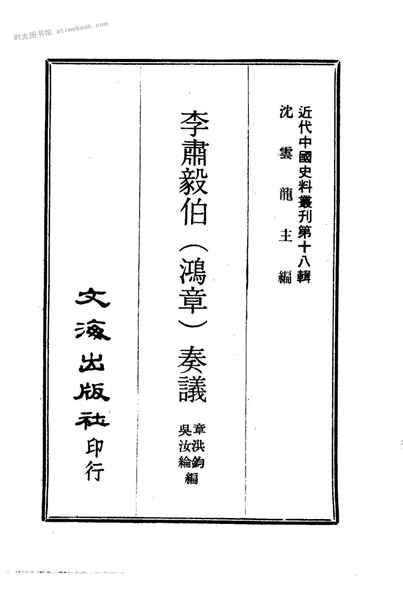 时光图书馆 atimebook.com
近代中國史料叢刊第十八輯
沈雲龍主編
李肅毅伯（鴻章）奏議
章洪鈞
吳汝綸編
文海出版社印行